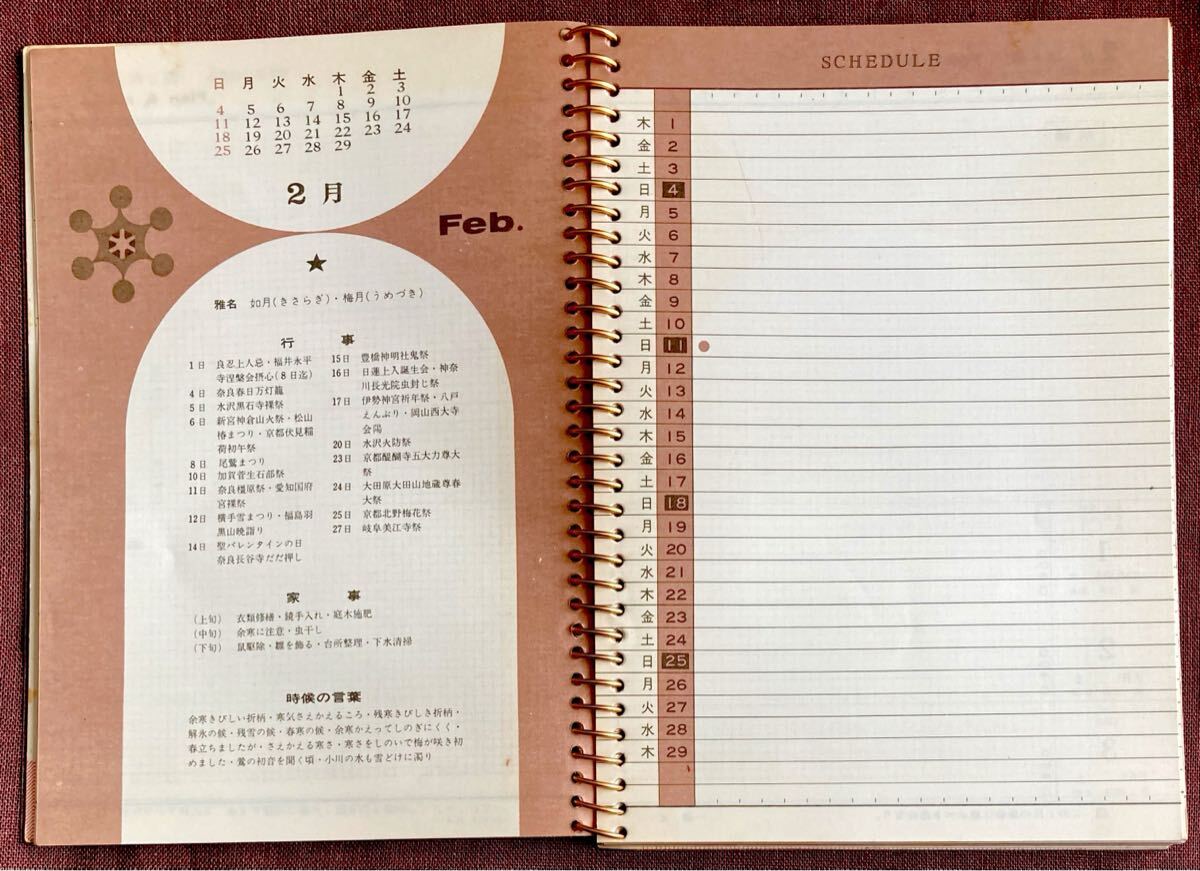 日 月 火 水 木 金 土
1 2 3
4 5 6 7 8 9 10
11 12 13 14 15 16 17
18 19 20 21 22 23 24
25 26 27 28 29
2月
Feb.
雅名 如月(きさらぎ)・梅月(うめづき)
行事
1日 良忍上人忌・福井永平
寺涅槃会摂心(8日迄)
4日 奈良春日万灯籠
5日 水沢黒石寺裸祭
6日 新宮神倉山火祭・松山
椿まつり・京都伏見稲
荷初午祭
8日 尾鷲まつり
10日 加賀菅生石部祭
11日 奈良橿原祭・愛知国府
宮裸祭
12日 横手雪まつり・福島羽
黒山暁詣り
14日 聖バレンタインの日
奈良長谷寺だだ押し
15日 豊橋神明社鬼祭
16日 日蓮上人誕生会・神奈
川長光院虫封じ祭
17日 伊勢神宮祈年祭・八戸
えんぶり・岡山西大寺
会陽
20日 水沢火防祭
23日 京都醍醐寺五大力尊大
祭
24日 大田原大田山地蔵尊春
大祭
25日 京都北野梅花祭
27日 岐阜美江寺祭
家事
(上旬) 衣類修繕・鏡手入れ・庭木施肥
(中旬) 余寒に注意・虫干し
(下旬) 鼠駆除・雛を飾る・台所整理・下水清掃
時候の言葉
余寒きびしい折柄・寒気さえかえるころ・残寒きびしき折柄・
解氷の候・残雪の候・春寒の候・余寒かえってしのぎにくく・
春立ちましたが・さえかえる寒さ・寒さをしのいで梅が咲き初
めました・鶯の初音を聞く頃・小川の水も雪どけに濁り
SCHEDULE
木 1
金 2
土 3
日 4
月 5
火 6
水 7
木 8
金 9
土 10
日 11
月 12
火 13
水 14
木 15
金 16
土 17
日 18
月 19
火 20
水 21
木 22
金 23
土 24
日 25
月 26
火 27
水 28
木 29